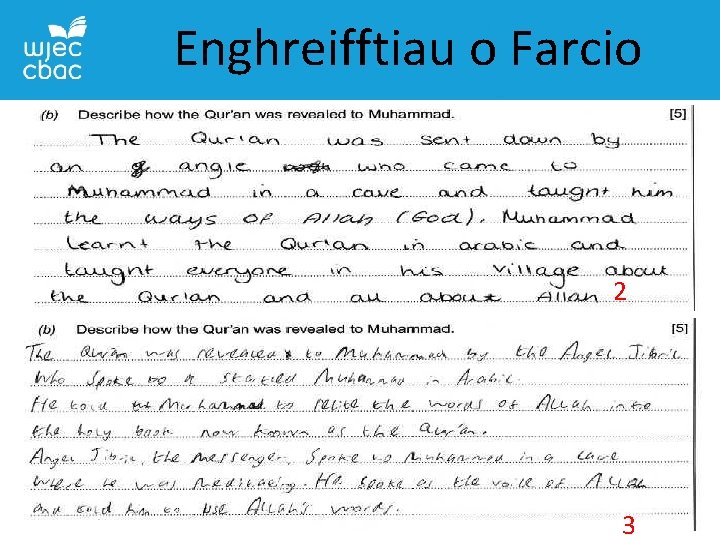 wjec
cbac
Enghreifftiau o Farcio
(b) Describe how the Qur'an was revealed to Muhammad. [5]
The Qur'an was sent down by
an angle who came to
Muhammad in a cave and taught him
the ways of Allah (God). Muhammad
learnt the Qur'an in arabic and
taught everyone in his village about
the Qur'an and all about Allah
2
(b) Describe how the Qur'an was revealed to Muhammad. [5]
The Qur'an was revealed to Muhammad by the Angel Jibril
who spoke to a startled Muhammad in Arabic.
He told Muhammad to recite the words of Allah into
the holy book now known as the Qur'an.
Angel Jibril, the messenger, spoke to Muhammad in a cave
where he was meditating. He spoke as the voice of Allah
and told him to use Allah's words.
3